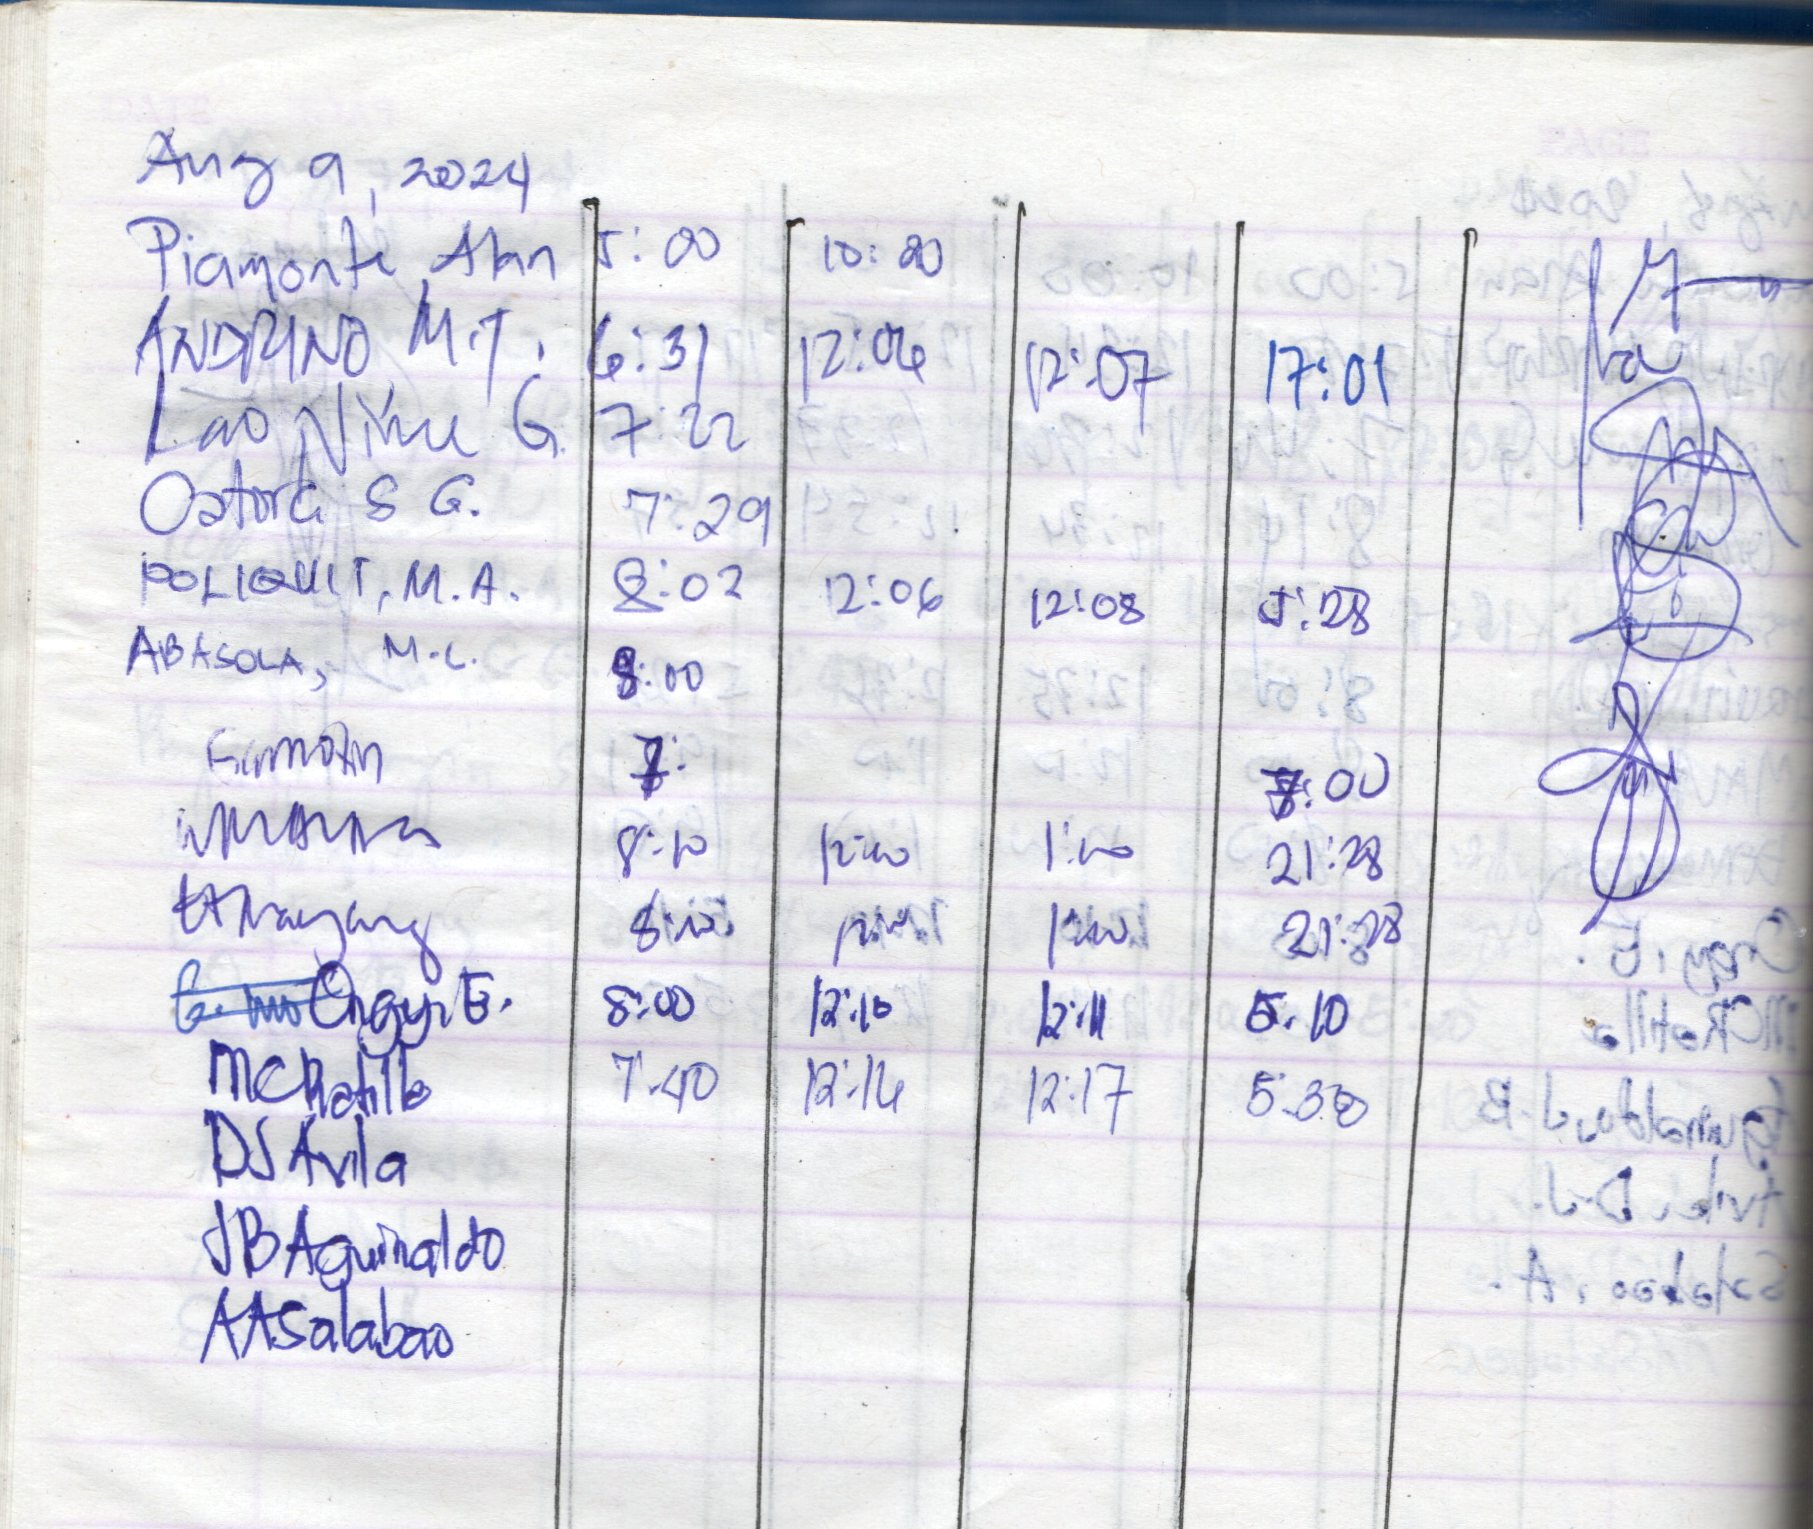 Aug 9, 2024
Piamonte, Alan 5:00 10:00
ANDRINO, M.T. 6:31 12:06 12:07 17:01
Lao Nixu G. 7:22
Oatora S G. 7:29
POLIQUIT, M.A. 8:02 12:06 12:08 5:28
ABASOLA, M.C. 8:00
7: :00
8:10 12:00 1:00 21:28
8:10 12:00 1:00 21:28
Ongy, E. 8:00 12:10 12:11 5:10
MCRatilla 7:40 12:16 12:17 5:30
DJ Avila
JB Aguinaldo
AA Salabao